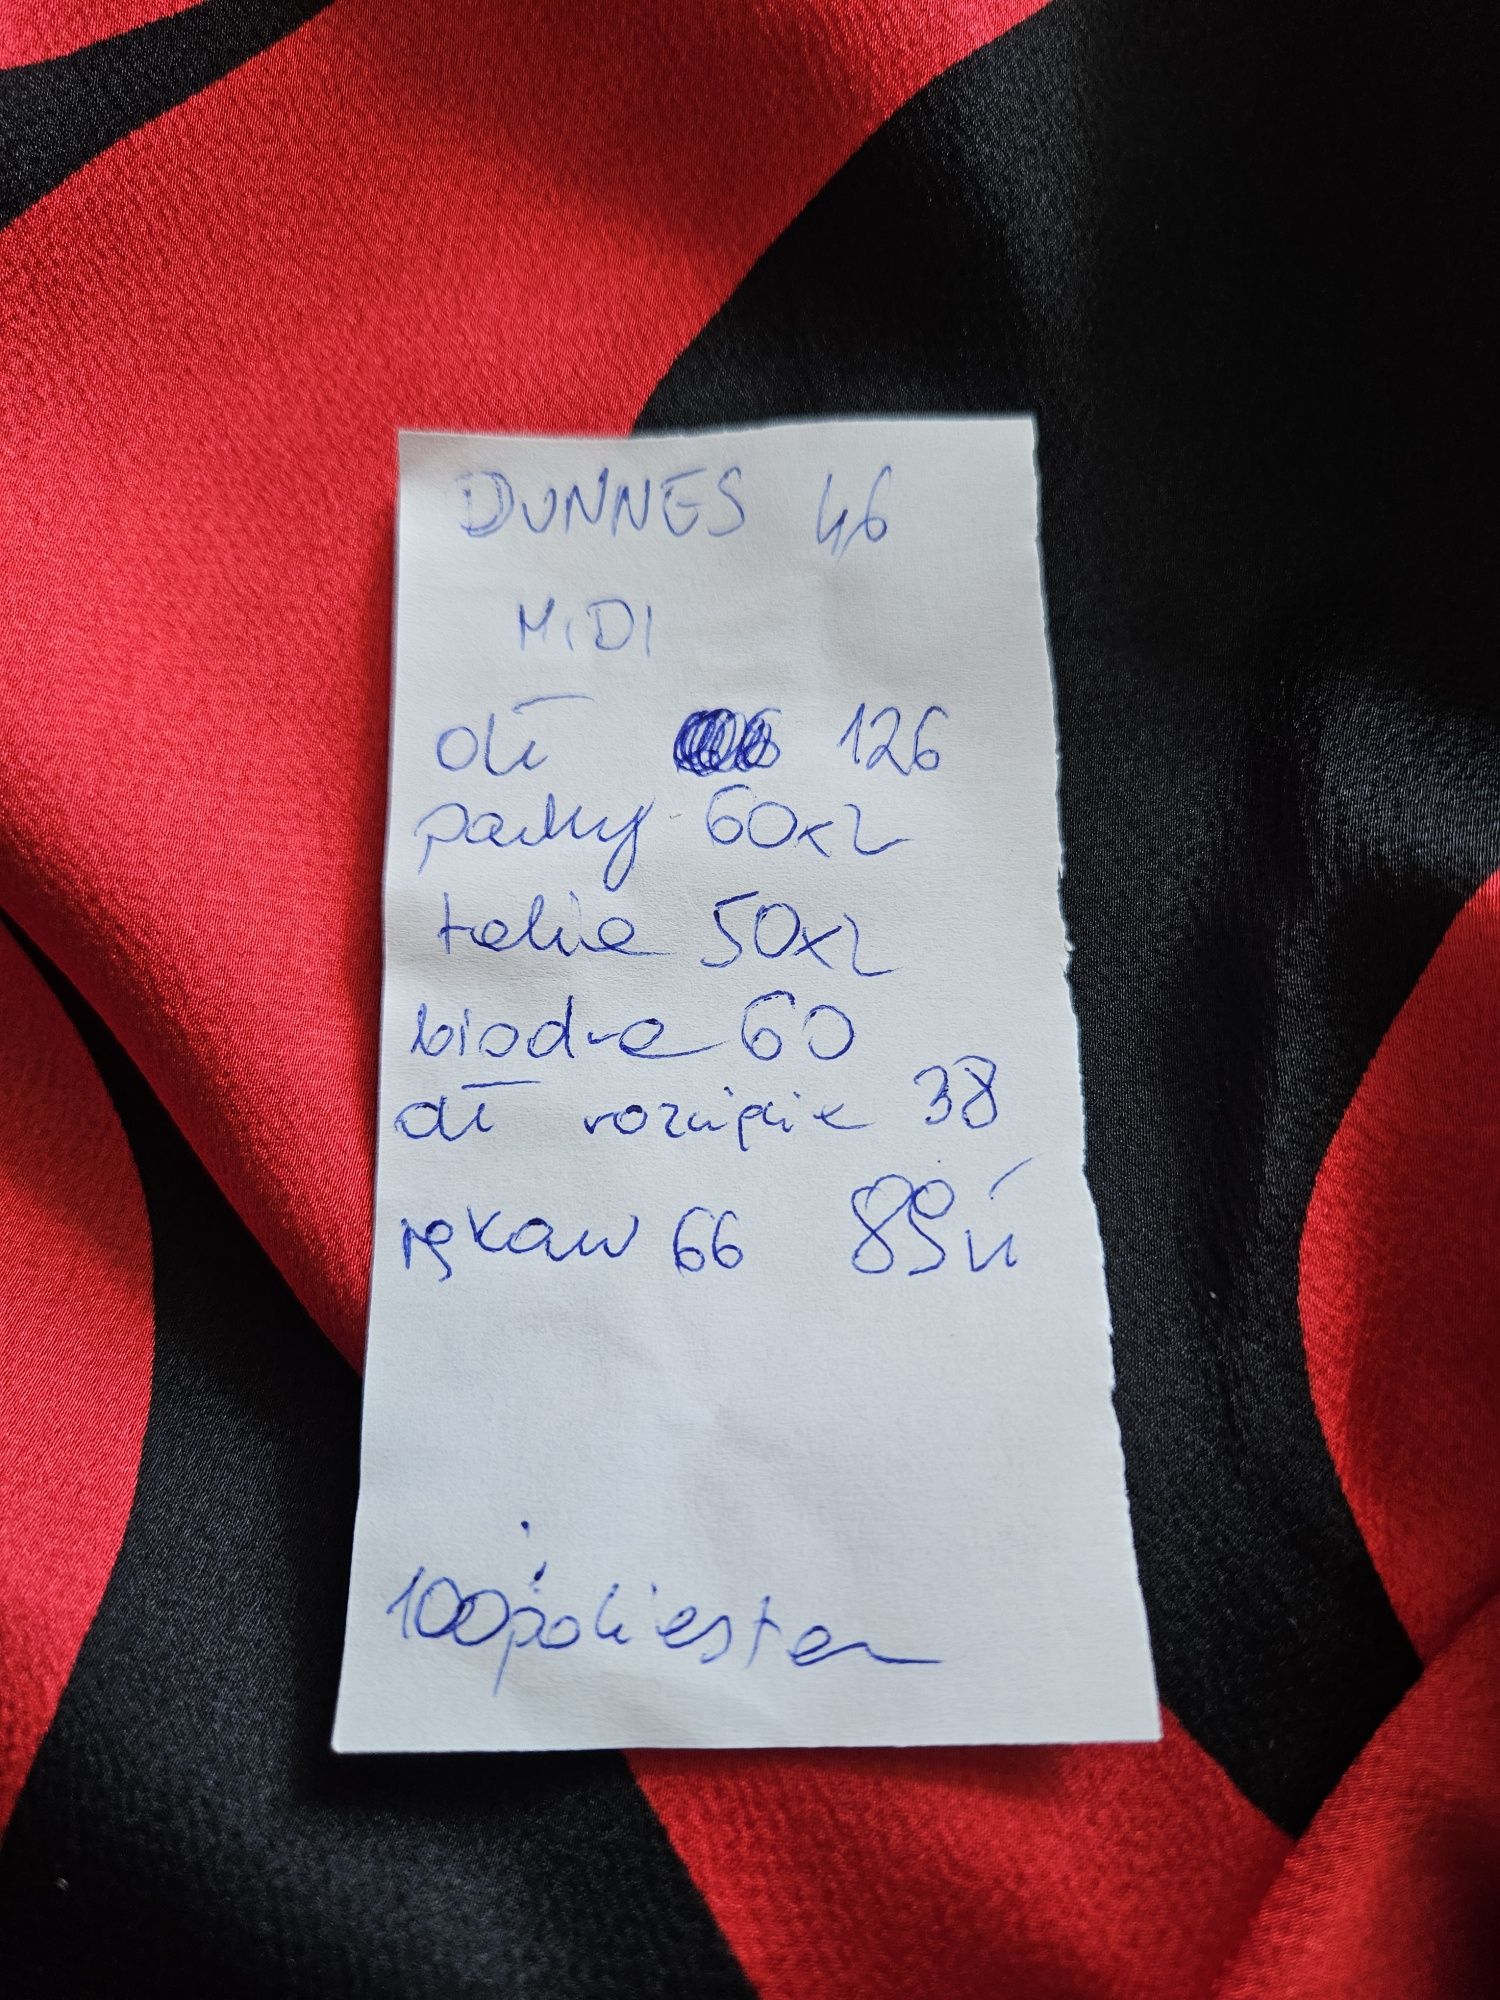 DUNNES 46
MIDI
dł 126
pachy 60x2
talia 50x2
biodra 60
dł rozcięcie 38
rękaw 66 89zł
100 poliester